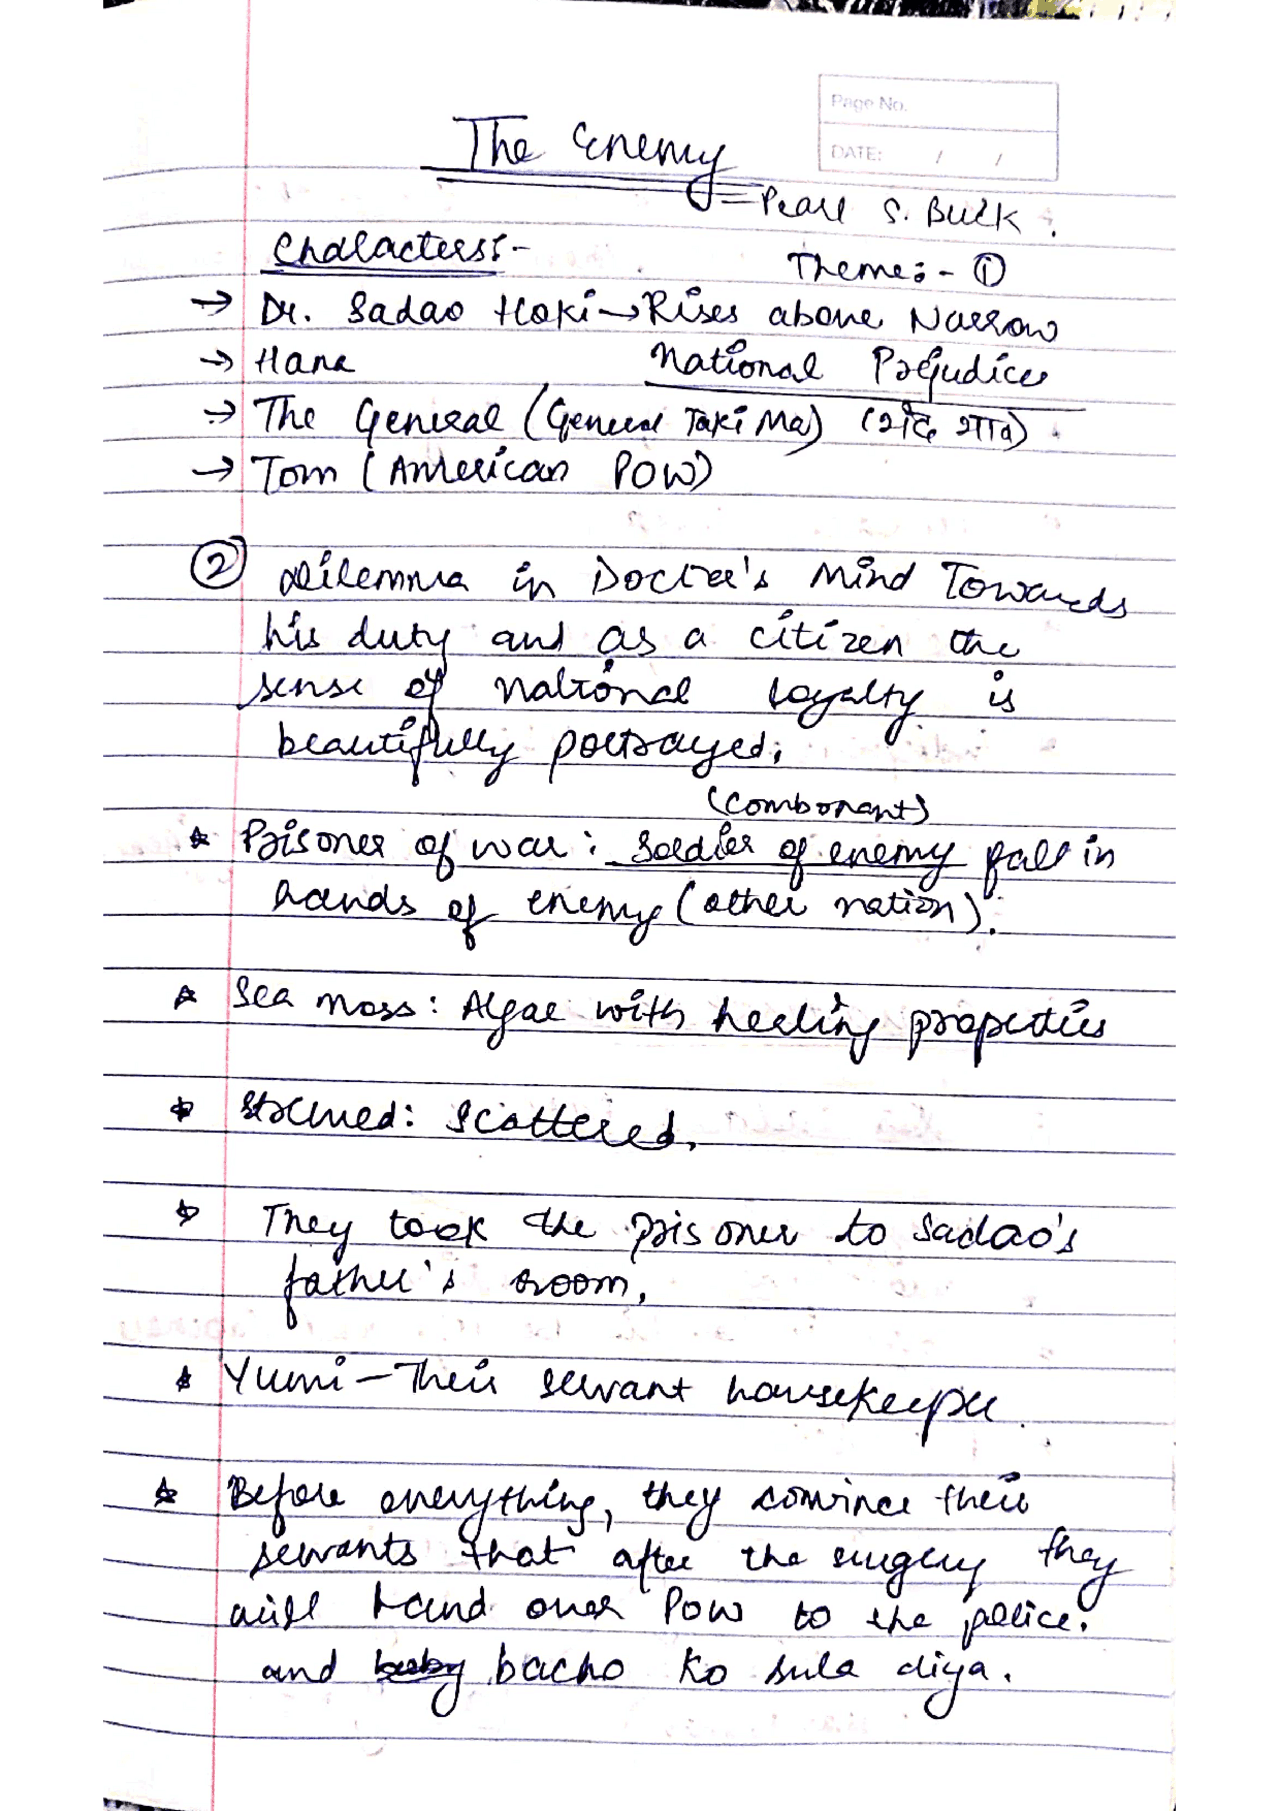 Page No.
DATE: / /
The Enemy
= Pearl S. Buck.
Characters:-
Theme:- ①
→ Dr. Sadao Hoki → Rises above Narrow
→ Hana
National Prejudices
→ The General (General Taki Ma)
→ Tom (American POW)
② Dilemma in Doctor's Mind Towards
his duty and as a citizen the
sense of national loyalty is
beautifully portrayed.
(combonant)
* Prisoner of war: soldier of enemy fall in
hands of enemy (other nation).
* Sea moss: Algae with healing properties
* Strewed: Scattered.
* They took the prisoner to Sadao's
father's room.
* Yumi - Their servant housekeeper.
* Before everything, they convince their
servants that after the surgery they
will hand over POW to the police.
and baby bacho ko sula diya.